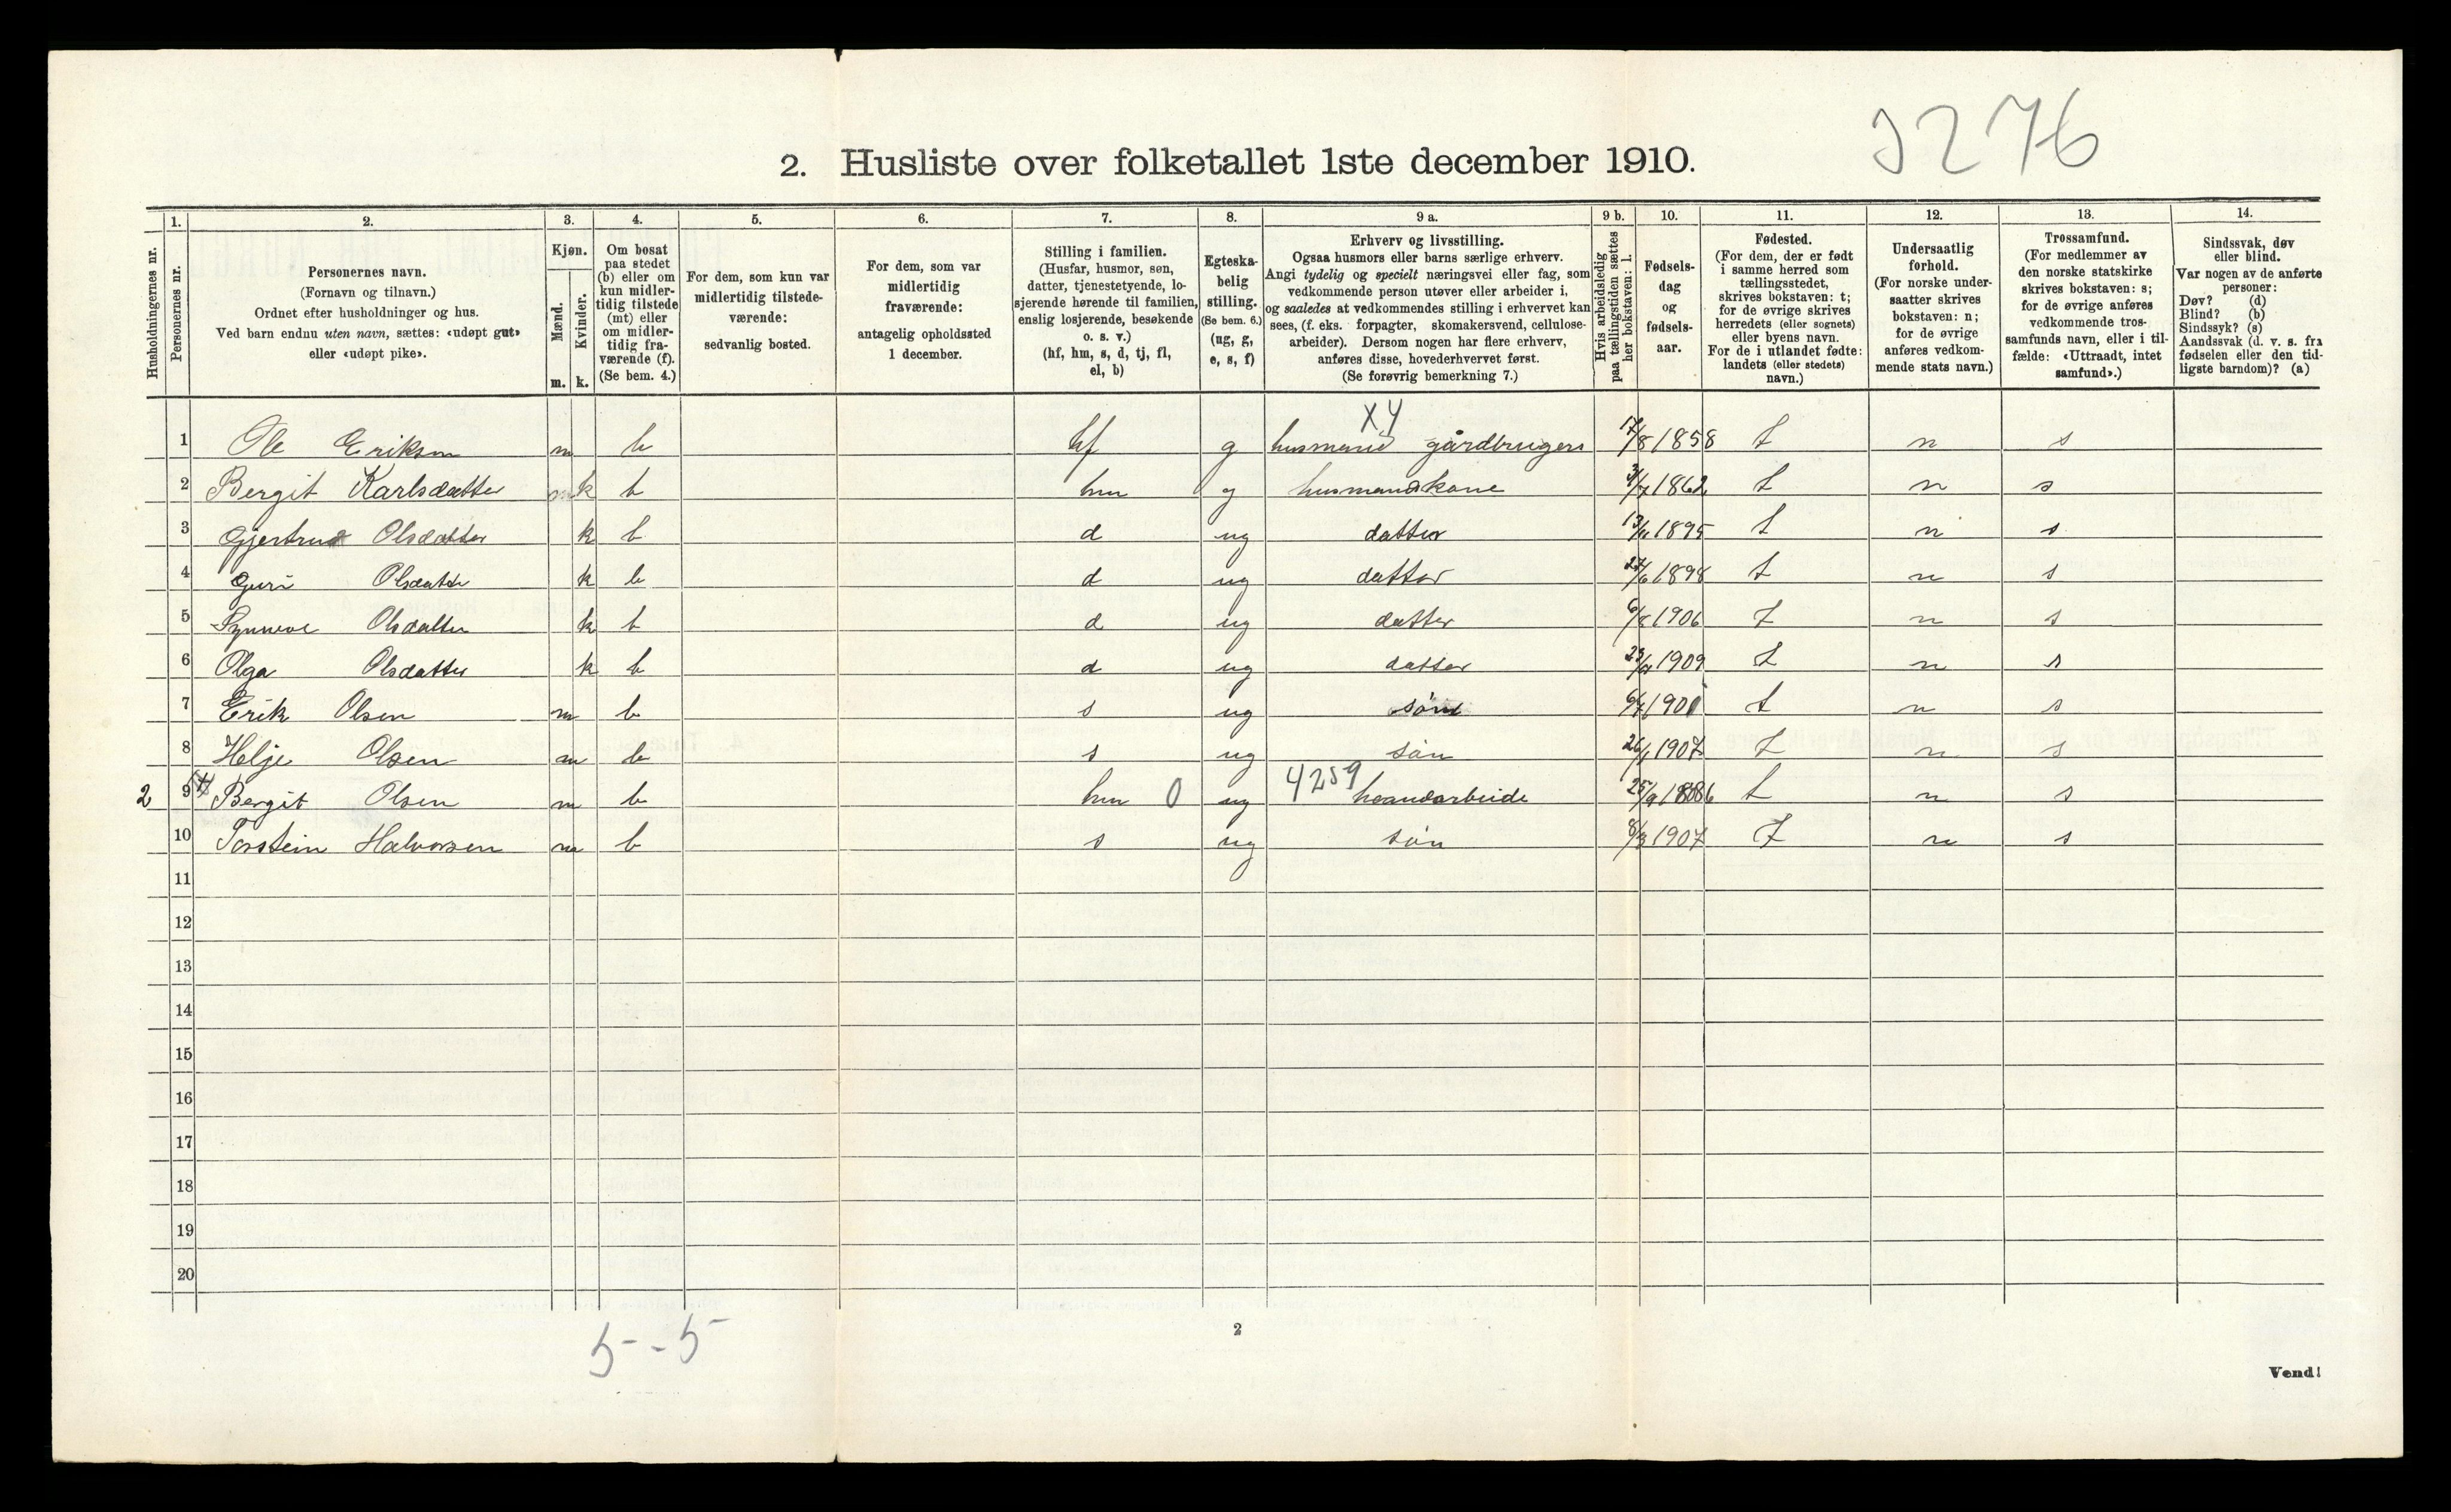 3276
2. Husliste over folketallet 1ste december 1910.
Husholdningernes nr.
1. Personernes nr.
2. Personernes navn.
(Fornavn og tilnavn.)
Ordnet efter husholdninger og hus.
Ved barn endnu uten navn, sættes: «udøpt gut»
eller «udøpt pike».
3. Kjøn.
Mænd. m.
Kvinder. k.
4. Om bosat
paa stedet
(b) eller om
kun midler-
tidig tilstede
(mt) eller
om midler-
tidig fra-
værende (f).
(Se bem. 4.)
5. For dem, som kun var
midlertidig tilstede-
værende:
sedvanlig bosted.
6. For dem, som var
midlertidig
fraværende:
antagelig opholdssted
1 december.
7. Stilling i familien.
(Husfar, husmor, søn,
datter, tjenestetyende, lo-
sjerende hørende til familien,
enslig losjerende, besøkende
o. s. v.)
(hf, hm, s, d, tj, fl,
el, b)
8. Egteska-
belig
stilling.
(Se bem. 6.)
(ug, g,
e, s, f)
9 a. Erhverv og livsstilling.
Ogsaa husmors eller barns særlige erhverv.
Angi tydelig og specielt næringsvei eller fag, som
vedkommende person utøver eller arbeider i,
og saaledes at vedkommendes stilling i erhvervet kan
sees, (f. eks. forpagter, skomakersvend, cellulose-
arbeider). Dersom nogen har flere erhverv,
anføres disse, hovederhvervet først.
(Se forøvrig bemerkning 7.)
9 b. Hvis arbeidsledig
paa tællingstiden sættes
her bokstaven: l.
10. Fødsels-
dag
og
fødsels-
aar.
11. Fødested.
(For dem, der er født
i samme herred som
tællingsstedet,
skrives bokstaven: t;
for de øvrige skrives
herredets (eller sognets)
eller byens navn.
For de i utlandet fødte:
landets (eller stedets)
navn.)
12. Undersaatlig
forhold.
(For norske under-
saatter skrives
bokstaven: n;
for de øvrige
anføres vedkom-
mende stats navn.)
13. Trossamfund.
(For medlemmer av
den norske statskirke
skrives bokstaven: s;
for de øvrige anføres
vedkommende tros-
samfunds navn, eller i til-
fælde: «Uttraadt, intet
samfund».)
14. Sindssvak, døv
eller blind.
Var nogen av de anførte
personer:
Døv? (d)
Blind? (b)
Sindssyk? (s)
Aandssvak (d. v. s. fra
fødselen eller den tid-
ligste barndom)? (a)
X 4
1 Ole Eriksen m b hf g husmand gårdbrugers 17/8 1858 t n s
2 Bergit Karlsdatter k b hm g husmandskone 1862 t n s
3 Gjertrud Olsdatter k b d ug datter 1895 t n s
4 Guri Olsdatter k b d ug datter 1898 t n s
5 Synneve Olsdatter k b d ug datter 6/8 1906 t n s
6 Olga Olsdatter k b d ug datter 1909 t n s
7 Erik Olsen m b s ug søn 1901 t n s
8 Helje Olsen m b s ug søn 26/1 1907 t n s
4259
2 9 Bergit Olsen m b hm 0 ug haandarbeide 25/9 1886 t n s
10 Torstein Halvorsen m b s ug søn 8/3 1907 t n s
11
12
13
14
15
16
17
18
19
20
5 - 5
2
Vend!